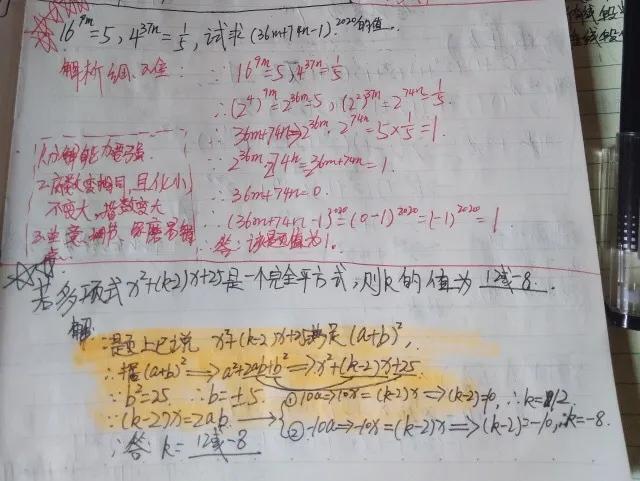 16^9m=5,4^37n=1/5,试求(36m+74n-1)^2020的值.
∵16^9m=5,4^37n=1/5
∴(2^4)^9m=2^36m=5,(2^2)^37n=2^74n=1/5.
2^36m·2^74n=5×1/5=1.
∴2^36m+74n=2^36m+74n=1.
∴36m+74n=0.
∴(36m+74n-1)^2020=(0-1)^2020=(-1)^2020=1
答:该题值为1。
1.分解能力要强
2.底数变相同,且化小
不变大,指数变大
3.注意细节,
若多项式x²+(k-2)x+25是一个完全平方式,则k的值为12或-8.
解:
∵题上已说x²+(k-2)x+25满足(a+b)².
∴据(a+b)²⟹a²+2ab+b²⟹x²+(k-2)x+25
∵b²=25. ∴b=±5.
∵(k-2)x=2ab.⟶
①10a⟹10x=(k-2)x⟹(k-2)=10,∴k=12
②-10a⟹-10x=(k-2)x⟹(k-2)=-10,∴k=-8.
∴答 k=12或-8